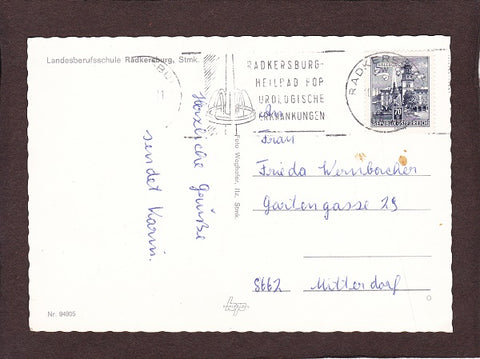 Landesberufsschule Radkersburg, Stmk.
RADKERSBURG-
HEILBAD FÜR
UROLOGISCHE
ERKRANKUNGEN
RADKERS
70
REPUBLIK ÖSTERREICH
Herzliche Grüße
sendet Karin.
An
Frau
Frieda
Gartengasse 29
8662 Mitterdorf
Nr. 94905